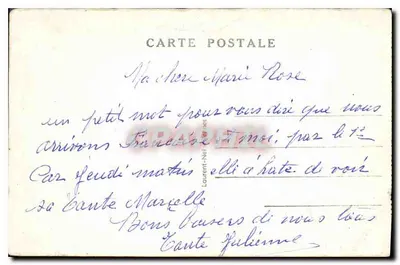 CARTE POSTALE
Ma chere Marie Rose
un petit mot pour vous dire que nous
arrivons Francoise et moi, par le 1er
Car Jeudi matin elle a hate de voir
sa Tante Marcelle
Bons baisers de nous tous
Tante Julienne